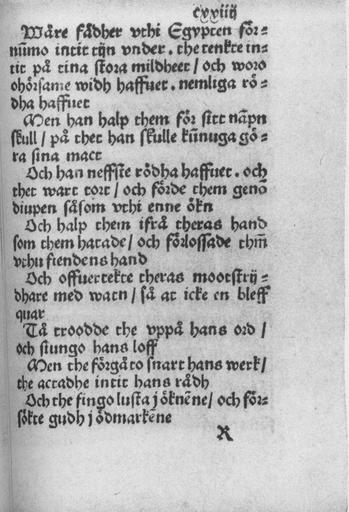 cxxiiij
Wåre fådher vthi Egypten för-
nũmo intit tijn vnder . the tenkte in-
tit på tina stora mildheet / och woro
ohörsame widh haffuet . nemliga rö-
dha haffuet
Men han halp them för sitt nãpn
skull / på thet han skulle kũnuga gö-
ra sina mact
Och han neffste rödha haffuet . och
thet wart tort / och förde them genõ
diupen såsom vthi enne ökn
Och halp them ifrå theras hand
som them hatade / och förlossade thm̃
vthu fiendens hand
Och offuertekte theras mootstrij-
dhare med watn / så at icke en bleff
quar
Tå troodde the vppå hans ord /
och siungo hans loff
Men the förgåto snart hans werk /
the actadhe intit hans rådh
Och the fingo lusta j öknẽne / och för-
sökte gudh j ödmarkẽne
R